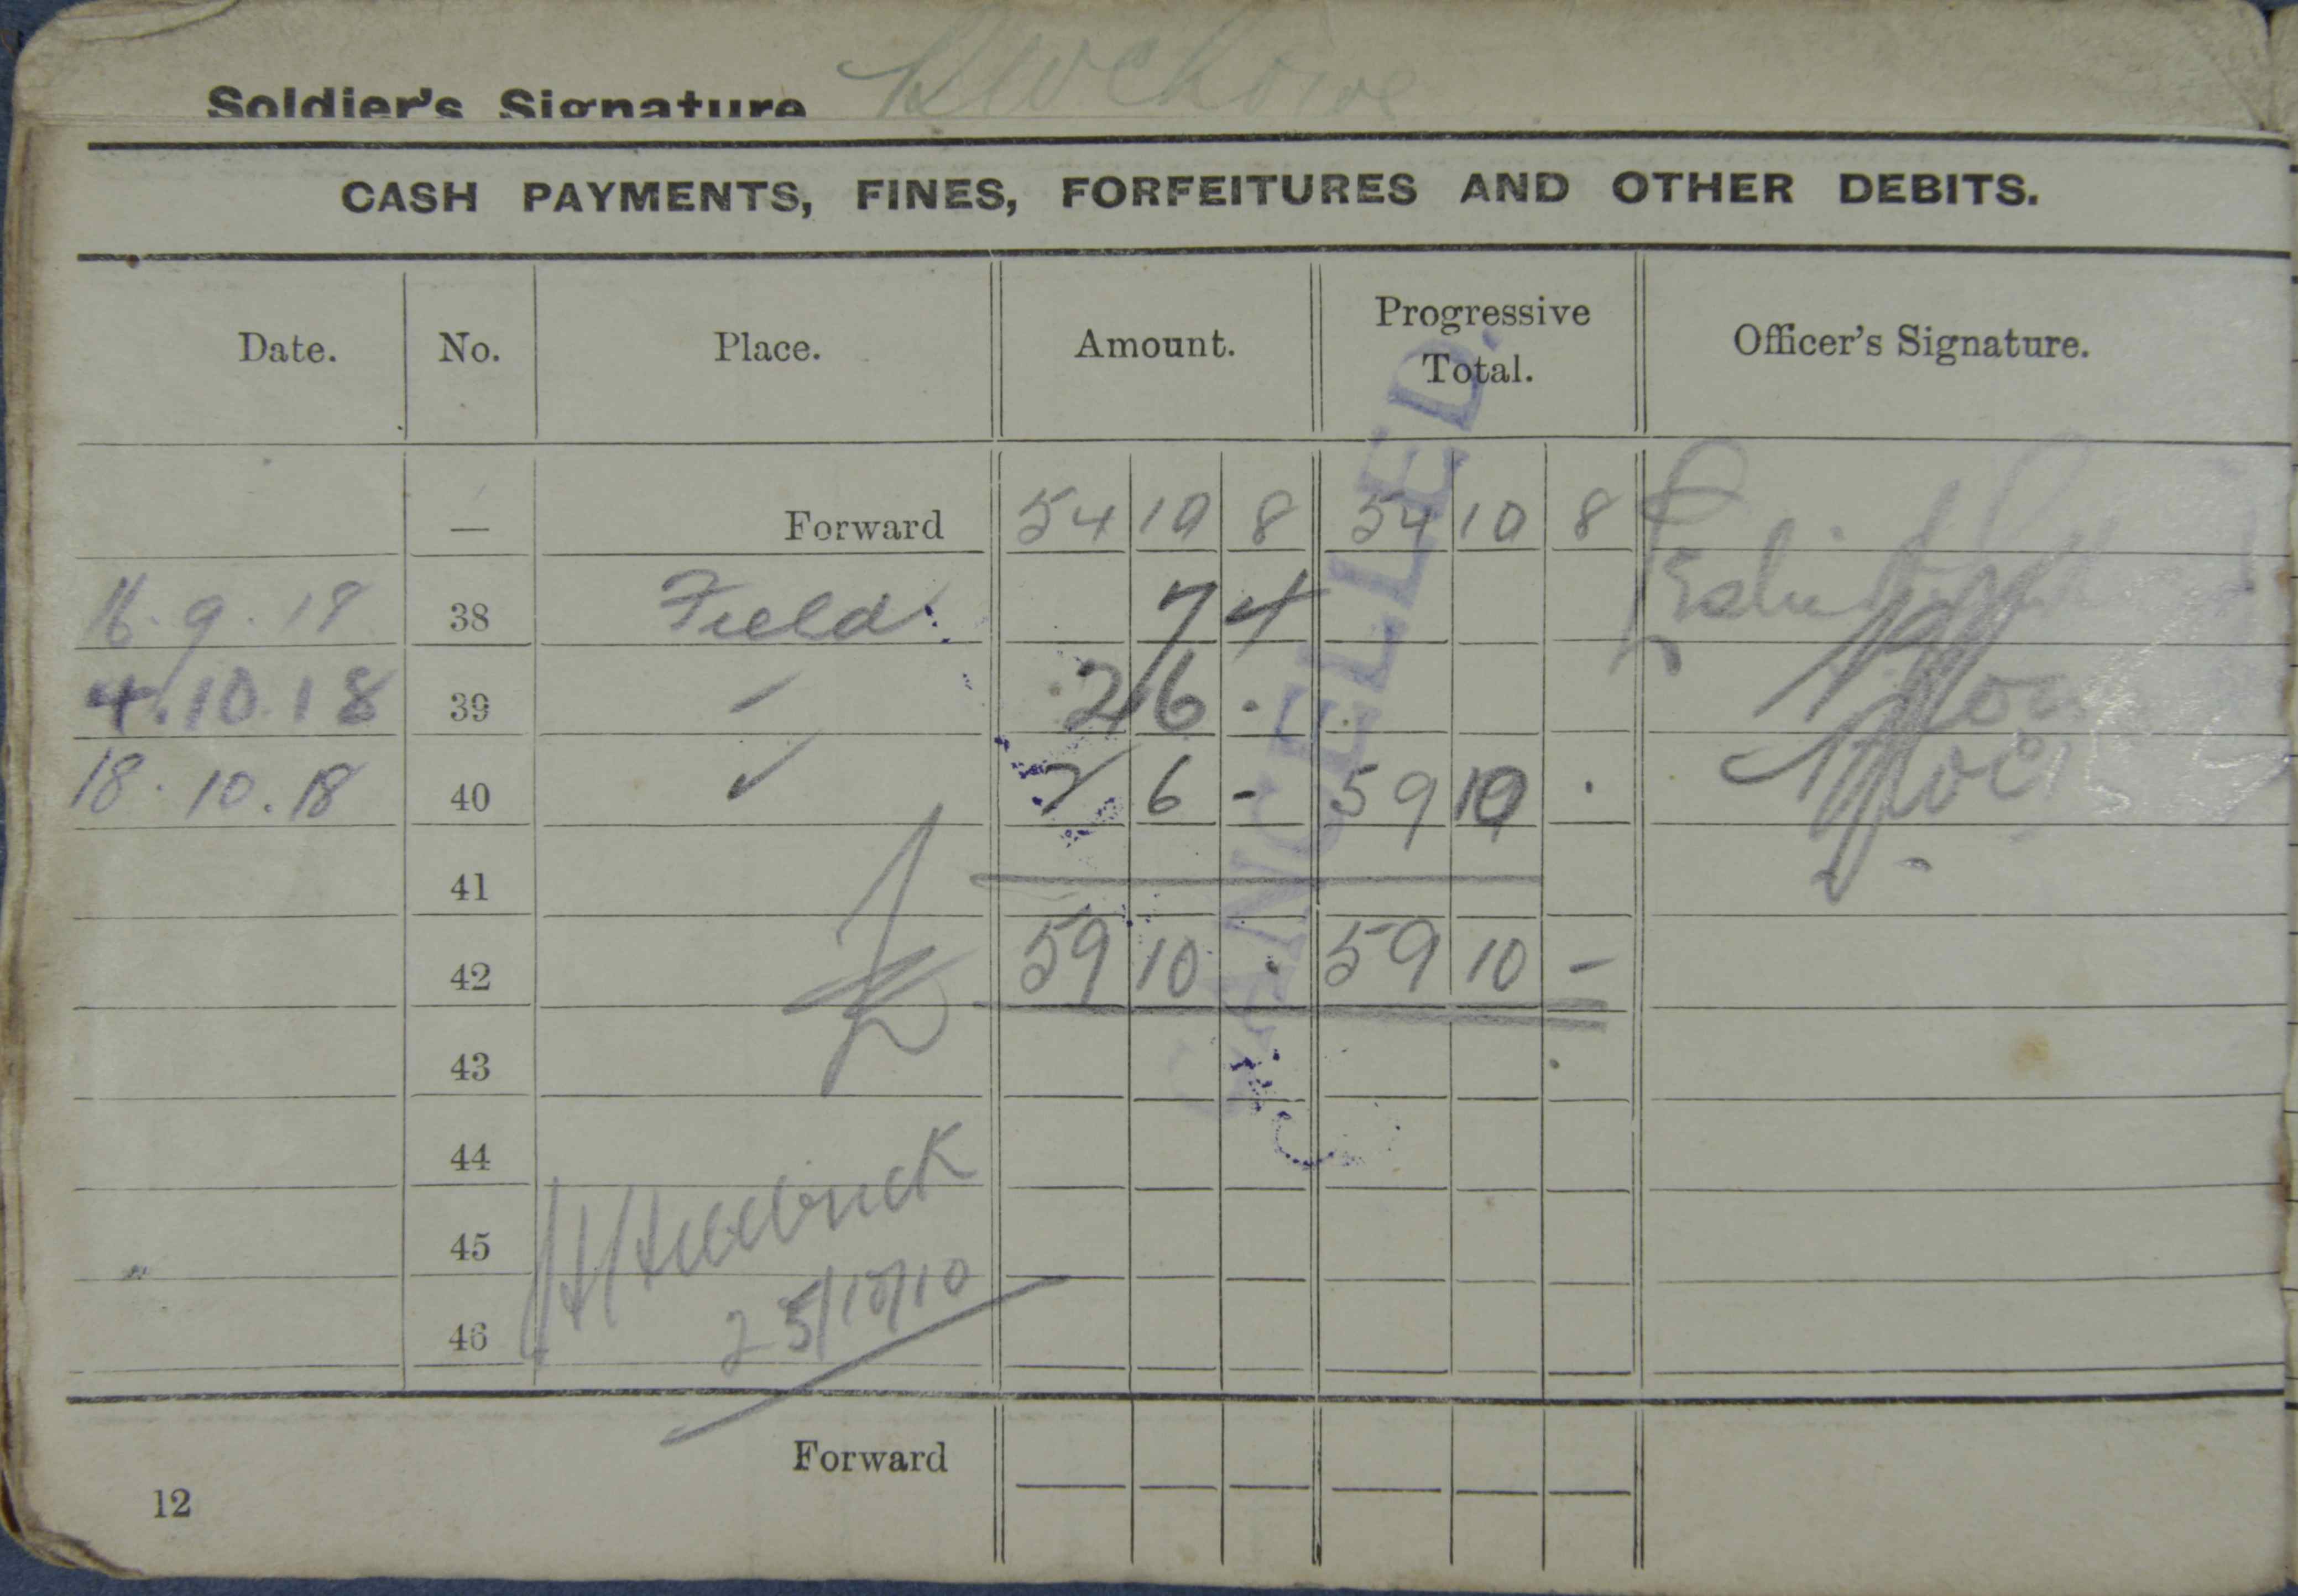 Soldier's Signature
CASH PAYMENTS, FINES, FORFEITURES AND OTHER DEBITS.
Date. No. Place. Amount. Progressive Total. Officer's Signature.
— Forward 54 10 8 54 10 8
16.9.18 38 Field 7 4
4.10.18 39 2 6 .
18.10.18 40 2 6 - 59 10 .
41
42 59 10 . 59 10 -
43
44
45
46
25/10/10
Forward
12
CANCELLED.